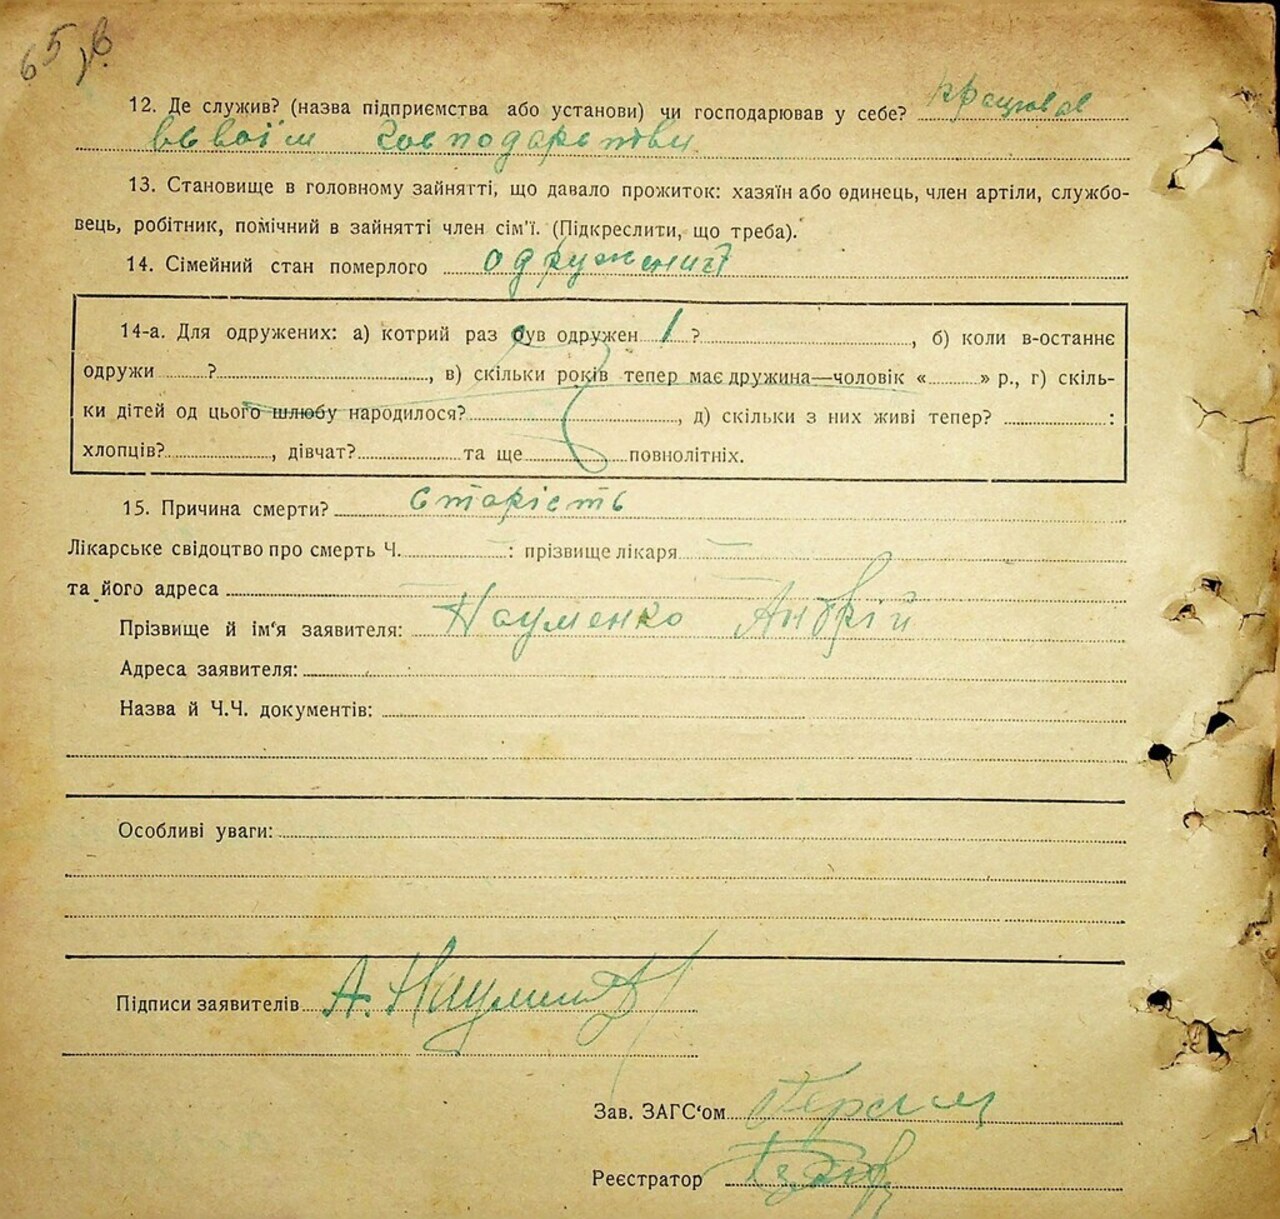 65 в
12. Де служив? (назва підприємства або установи) чи господарював у себе? працював
в своїм господарстви
13. Становище в головному зайнятті, що давало прожиток: хазяїн або одинець, член артіли, службо-
вець, робітник, помічний в зайнятті член сім'ї. (Підкреслити, що треба).
14. Сімейний стан померлого одружений
14-а. Для одружених: а) котрий раз був одружен 1 ? , б) коли в-останнє
одружи ? , в) скільки років тепер має дружина—чоловік « » р., г) скіль-
ки дітей од цього шлюбу народилося? , д) скільки з них живі тепер? :
хлопців? , дівчат? та ще повнолітніх.
15. Причина смерти? старість
Лікарське свідоцтво про смерть Ч. — : прізвище лікаря —
та його адреса —
Прізвище й ім'я заявителя: Науменко Андрій
Адреса заявителя:
Назва й Ч.Ч. документів:
Особливі уваги:
Підписи заявителів А. Науменко
Зав. ЗАГС'ом
Реєстратор